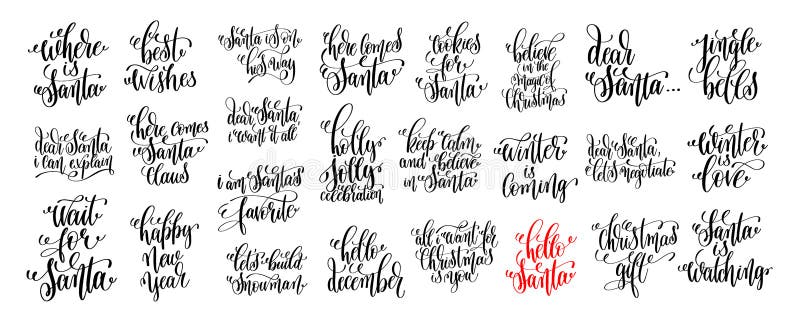 where
is
Santa
best
wishes
Santa is on
his way
here comes
Santa
cookies
for
Santa
believe
in the
magic of
Christmas
dear
Santa...
jingle
bells
dear Santa
i can explain
here comes
Santa
claus
dear Santa,
i want it all
i am Santa's
favorite
holly
jolly
celebration
keep calm
and believe
in Santa
winter
is
coming
dear Santa,
let's negotiate
winter
is
love
wait
for
Santa
happy
new
year
let's build
snowman
hello
december
all i want for
Christmas
is you
hello
Santa
Christmas
gift
Santa
is
watching